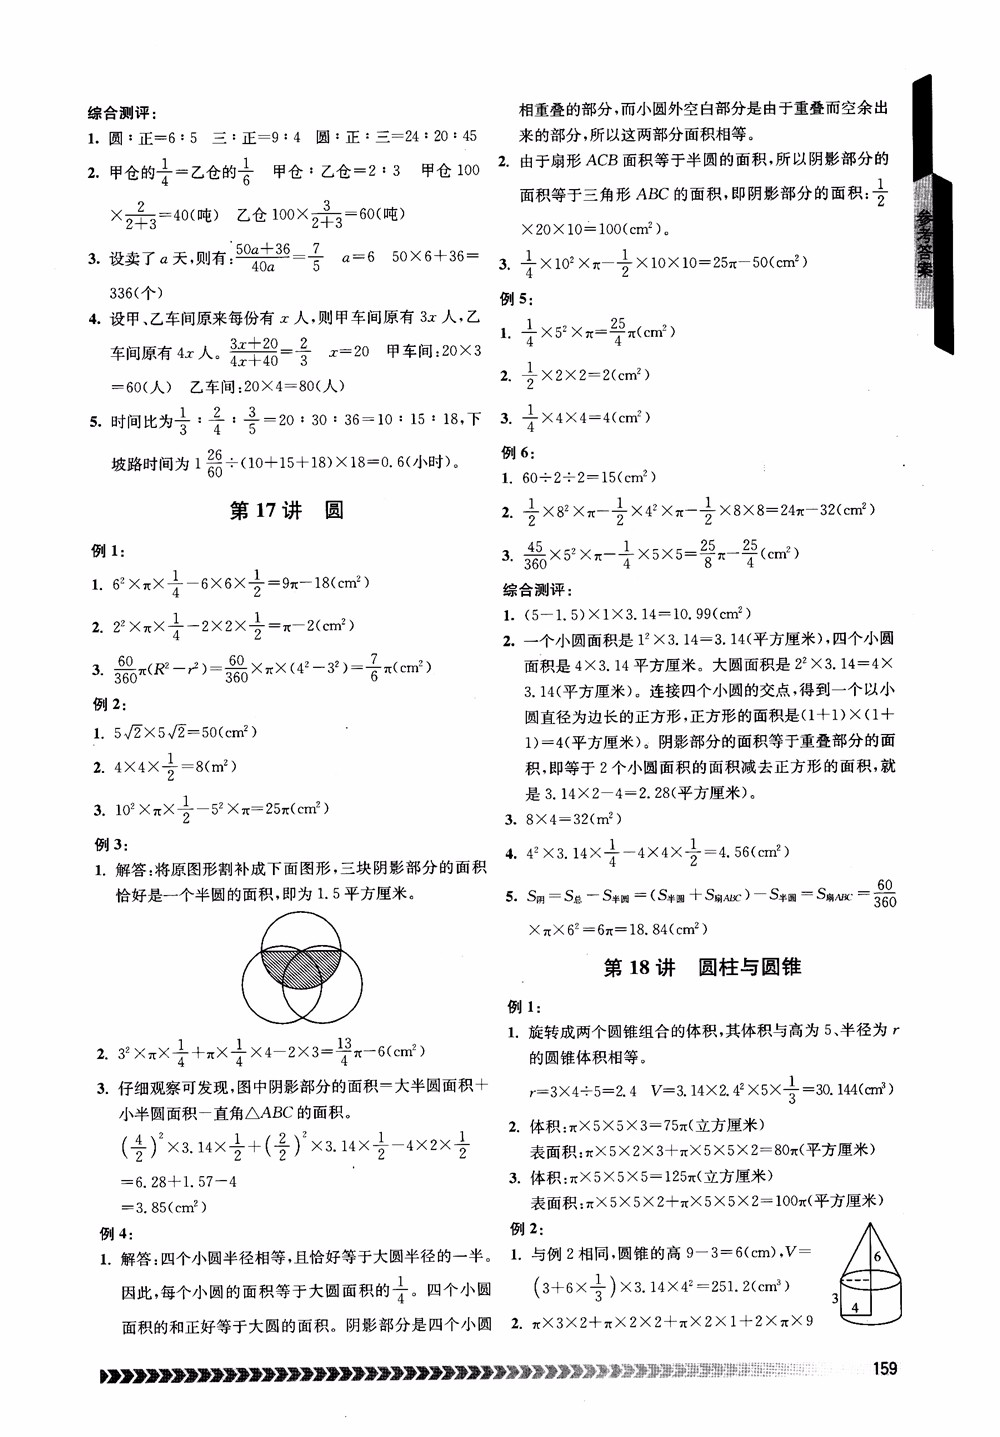 综合测评:
1. 圆∶正=6∶5 三∶正=9∶4 圆∶正∶三=24∶20∶45
2. 甲仓的1/4=乙仓的1/6 甲仓∶乙仓=2∶3 甲仓 100
×2/(2+3)=40(吨) 乙仓 100×3/(2+3)=60(吨)
3. 设卖了 a 天,则有:(50a+36)/40a=7/5 a=6 50×6+36=
336(个)
4. 设甲、乙车间原来每份有 x 人,则甲车间原有 3x 人,乙
车间原有 4x 人。(3x+20)/(4x+40)=2/3 x=20 甲车间:20×3
=60(人) 乙车间:20×4=80(人)
5. 时间比为1/3∶2/4∶3/5=20∶30∶36=10∶15∶18,下
坡路时间为 1 26/60÷(10+15+18)×18=0.6(小时)。
第 17 讲 圆
例 1:
1. 6²×π×1/4-6×6×1/2=9π-18(cm²)
2. 2²×π×1/4-2×2×1/2=π-2(cm²)
3. 60/360π(R²-r²)=60/360×π×(4²-3²)=7/6π(cm²)
例 2:
1. 5√2×5√2=50(cm²)
2. 4×4×1/2=8(m²)
3. 10²×π×1/2-5²×π=25π(cm²)
例 3:
1. 解答:将原图形割补成下面图形,三块阴影部分的面积
恰好是一个半圆的面积,即为 1.5 平方厘米。
2. 3²×π×1/4+π×1/4×4-2×3=13/4π-6(cm²)
3. 仔细观察可发现,图中阴影部分的面积=大半圆面积+
小半圆面积-直角△ABC 的面积。
(4/2)²×3.14×1/2+(2/2)²×3.14×1/2-4×2×1/2
=6.28+1.57-4
=3.85(cm²)
例 4:
1. 解答:四个小圆半径相等,且恰好等于大圆半径的一半。
因此,每个小圆的面积等于大圆面积的1/4。四个小圆
面积的和正好等于大圆的面积。阴影部分是四个小圆
相重叠的部分,而小圆外空白部分是由于重叠而空余出
来的部分,所以这两部分面积相等。
2. 由于扇形 ACB 面积等于半圆的面积,所以阴影部分的
面积等于三角形 ABC 的面积,即阴影部分的面积:1/2
×20×10=100(cm²)。
3. 1/4×10²×π-1/2×10×10=25π-50(cm²)
例 5:
1. 1/4×5²×π=25/4π(cm²)
2. 1/2×2×2=2(cm²)
3. 1/4×4×4=4(cm²)
例 6:
1. 60÷2÷2=15(cm²)
2. 1/2×8²×π-1/2×4²×π-1/2×8×8=24π-32(cm²)
3. 45/360×5²×π-1/4×5×5=25/8π-25/4(cm²)
综合测评:
1. (5-1.5)×1×3.14=10.99(cm²)
2. 一个小圆面积是 1²×3.14=3.14(平方厘米),四个小圆
面积是 4×3.14 平方厘米。大圆面积是 2²×3.14=4×
3.14(平方厘米)。连接四个小圆的交点,得到一个以小
圆直径为边长的正方形,正方形的面积是(1+1)×(1+
1)=4(平方厘米)。阴影部分的面积等于重叠部分的面
积,即等于 2 个小圆面积的面积减去正方形的面积,就
是 3.14×2-4=2.28(平方厘米)。
3. 8×4=32(m²)
4. 4²×3.14×1/4-4×4×1/2=4.56(cm²)
5. S阴=S总-S半圆=(S半圆+S扇ABC)-S半圆=S扇ABC=60/360
×π×6²=6π=18.84(cm²)
第 18 讲 圆柱与圆锥
例 1:
1. 旋转成两个圆锥组合的体积,其体积与高为 5、半径为 r
的圆锥体积相等。
r=3×4÷5=2.4 V=3.14×2.4²×5×1/3=30.144(cm³)
2. 体积:π×5×5×3=75π(立方厘米)
表面积:π×5×2×3+π×5×5×2=80π(平方厘米)
3. 体积:π×5×5×5=125π(立方厘米)
表面积:π×5×5×2+π×5×5×2=100π(平方厘米)
例 2:
1. 与例 2 相同,圆锥的高 9-3=6(cm),V=
(3+6×1/3)×3.14×4²=251.2(cm³)
6
3
4
2. π×3×2+π×2×2+π×2×1+2×π×9
参考答案
159